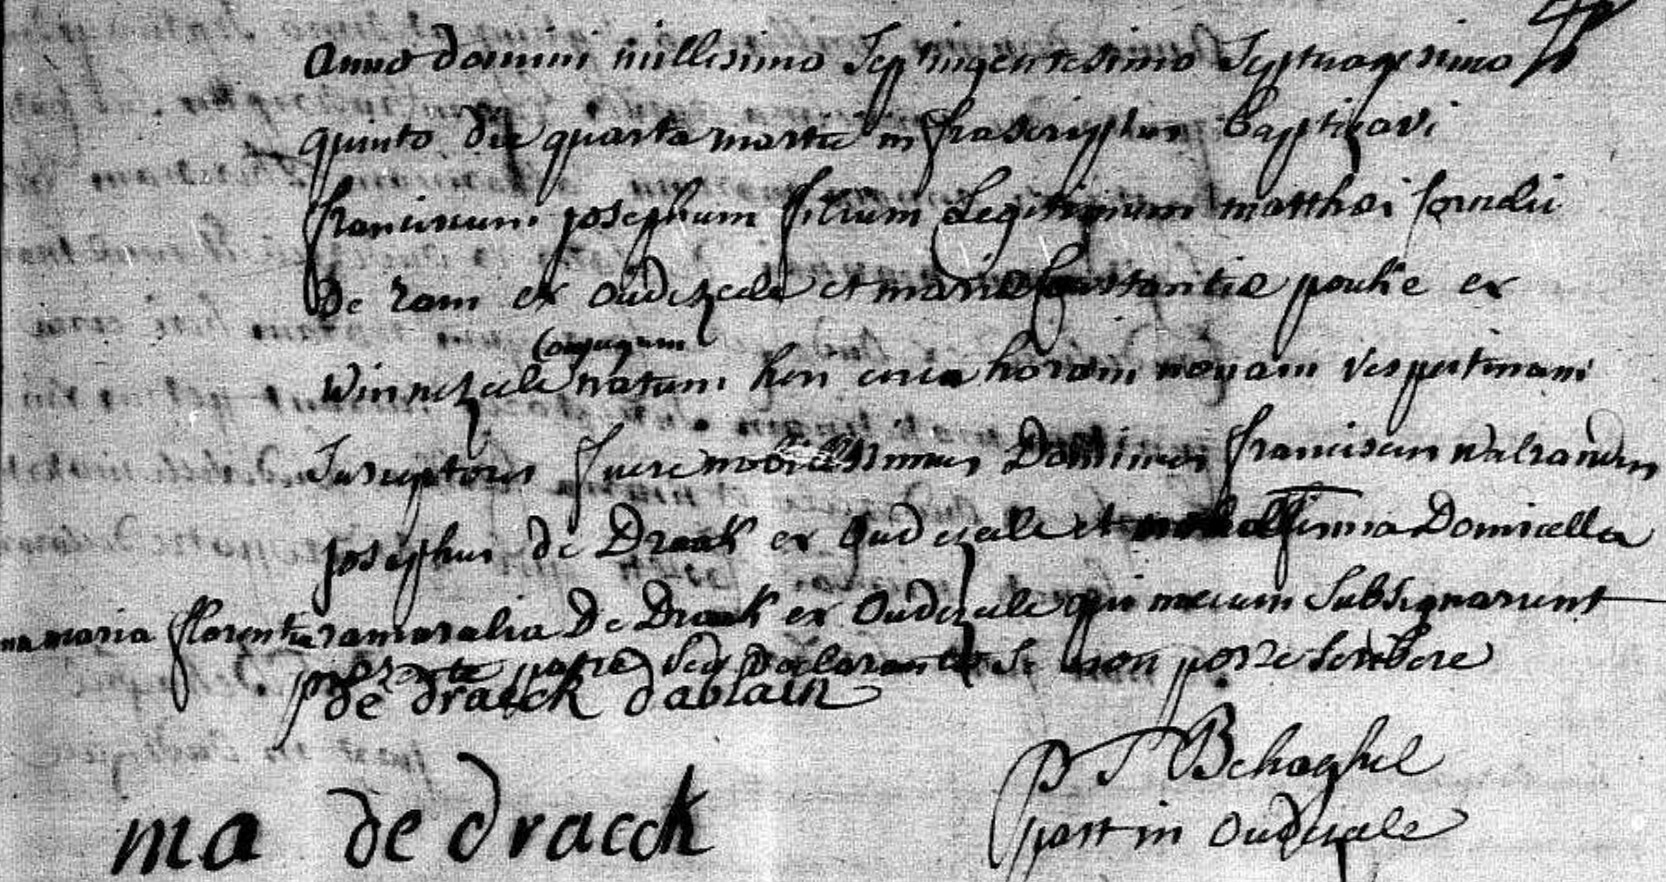 Anno domini millesimo Septingentesimo Septuagesimo
quinto die quarta martii infrascriptus Baptizavi
franciscum josephum filium Legitimum matthæi Cornelii
De ram ex oudezeele et mariæ Constantiæ ex
Conjugum
Winnezeele natum heri circa horam nonam vespertinam
Susceptores fuere nobilissimus Dominus franciscus walrandus
josephus de Draek ex Oudezeele et nobilissima Domicella
maria florentia ramaralia De Draek ex Oudezeele qui mecum Subsignarunt
præsente patre sed declarante se non posse scribere
de draeck dablain
P J Behaghel
past in oudezeele
ma de draeck